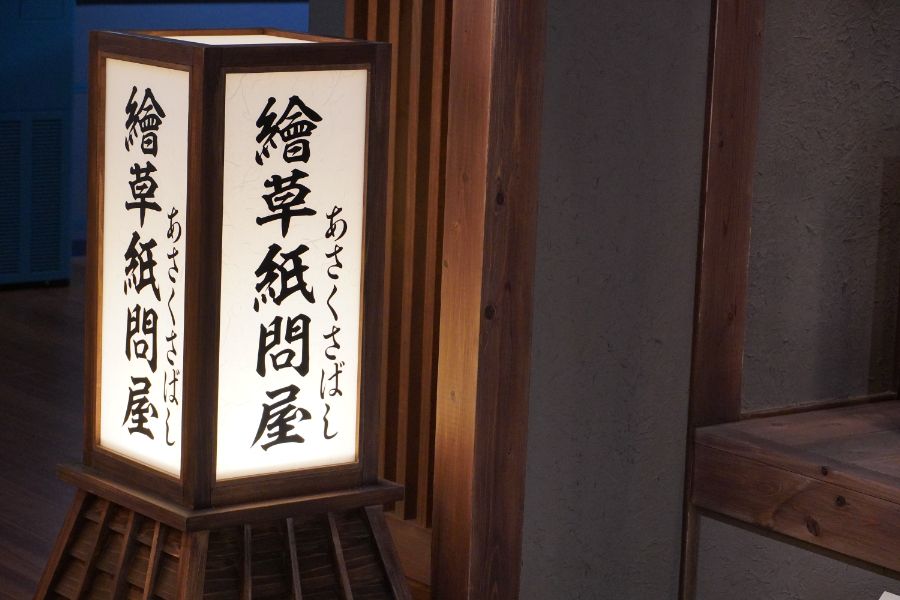 繪草紙問屋
あさくさばし
繪草紙問屋
あさくさばし